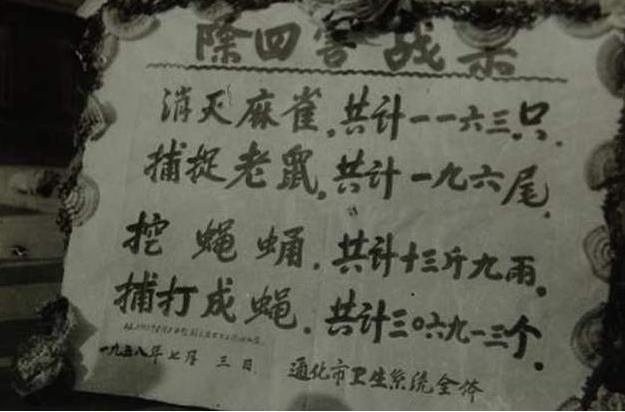 除四害战
消灭麻雀,共计一一六三只.
捕捉老鼠,共计一九六尾.
挖蝇蛹.共计十三斤九两.
捕打成蝇.共计三0六九一三个.
一九五八年七月三日.
通化市卫生系统全体